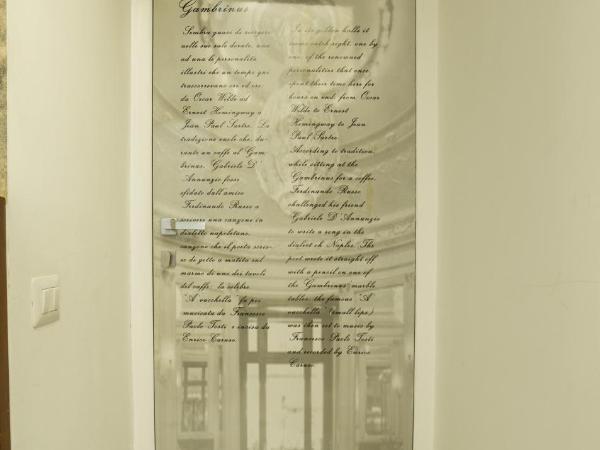 Gambrinus
Sembra quasi di scorgere
nelle sue sale dorate, una
ad una le personalità
illustri che un tempo qui
trascorrevano ore ed ore
da Oscar Wilde ad
Ernest Hemingway a
Jean Paul Sartre. La
tradizione vuole che, du-
rante un caffè al "Gam-
brinus, Gabriele D'
Annunzio fosse
sfidato dall'amico
Ferdinando Russo a
scrivere una canzone in
dialetto napoletano,
canzone che il poeta scris-
se di getto a matita sul
marmo di uno dei tavoli
del caffè: la celebre
"A vucchella" fu poi
musicata da Francesco
Paolo Tosti e incisa da
Enrico Caruso.
In its golden halls it
catch sight, one by
one, of the renowned
personalities that once
spent their time here for
hours on end, from Oscar
Wilde to Ernest
Hemingway to Jean
Paul Sartre.
According to tradition,
while sitting at the
Gambrinus for a coffee,
Ferdinando Russo
challenged his friend
Gabriele D'Annunzio
to write a song in the
dialect of Naples. The
poet wrote it straight off
with a pencil on one of
the "Gambrinus" marble
tables: the famous "A
vucchella" (small lips)
was then set to music by
Francesco Paolo Tosti
and recorded by Enrico
Caruso.